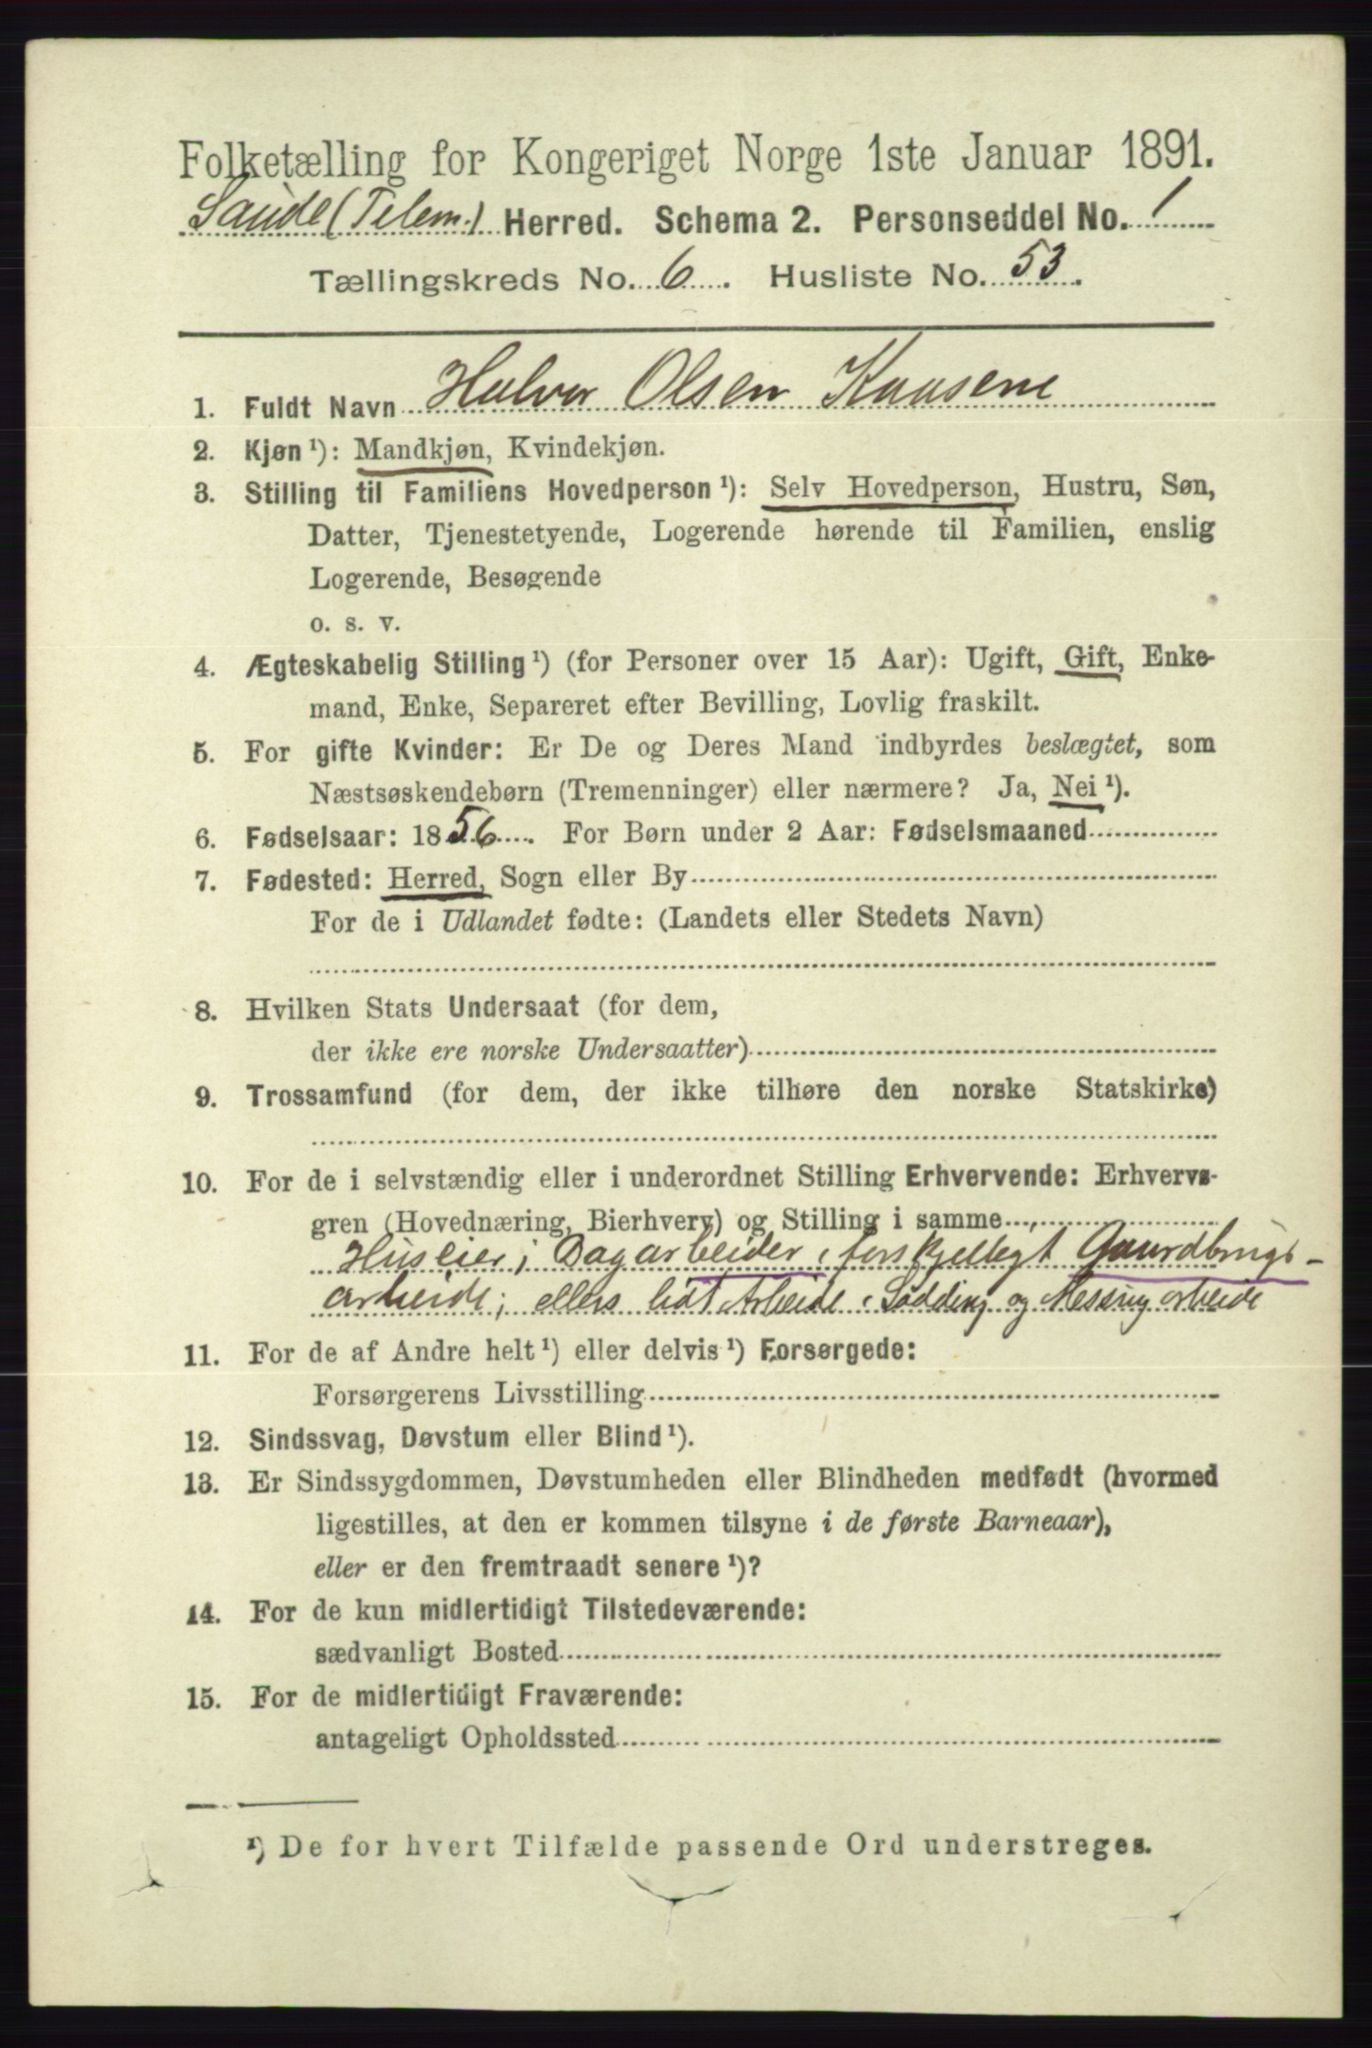 Folketælling for Kongeriget Norge 1ste Januar 1891.
Saude (Telem.) Herred. Schema 2. Personseddel No. 1
Tællingskreds No. 6. Husliste No. 53.
1. Fuldt Navn Halvor Olsen Kaasene
2. Kjøn ¹): Mandkjøn, Kvindekjøn.
3. Stilling til Familiens Hovedperson ¹): Selv Hovedperson, Hustru, Søn,
Datter, Tjenestetyende, Logerende hørende til Familien, enslig
Logerende, Besøgende
o. s. v.
4. Ægteskabelig Stilling ¹) (for Personer over 15 Aar): Ugift, Gift, Enke-
mand, Enke, Separeret efter Bevilling, Lovlig fraskilt.
5. For gifte Kvinder: Er De og Deres Mand indbyrdes beslægtet, som
Næstsøskendebørn (Tremenninger) eller nærmere? Ja, Nei ¹).
6. Fødselsaar: 1856. For Børn under 2 Aar: Fødselsmaaned
7. Fødested: Herred, Sogn eller By
For de i Udlandet fødte: (Landets eller Stedets Navn)
8. Hvilken Stats Undersaat (for dem,
der ikke ere norske Undersaatter)
9. Trossamfund (for dem, der ikke tilhøre den norske Statskirke)
10. For de i selvstændig eller i underordnet Stilling Erhvervende: Erhvervs-
gren (Hovednæring, Bierhverv) og Stilling i samme
Huseier; Dagarbeider i forskjelligt Gaardbrugs-
arbeide; ellers lidt Arbeide i Lødding og Messing arbeide
11. For de af Andre helt ¹) eller delvis ¹) Forsørgede:
Forsørgerens Livsstilling
12. Sindssvag, Døvstum eller Blind ¹).
13. Er Sindssygdommen, Døvstumheden eller Blindheden medfødt (hvormed
ligestilles, at den er kommen tilsyne i de første Barneaar),
eller er den fremtraadt senere ¹)?
14. For de kun midlertidigt Tilstedeværende:
sædvanligt Bosted
15. For de midlertidigt Fraværende:
antageligt Opholdssted
¹) De for hvert Tilfælde passende Ord understreges.